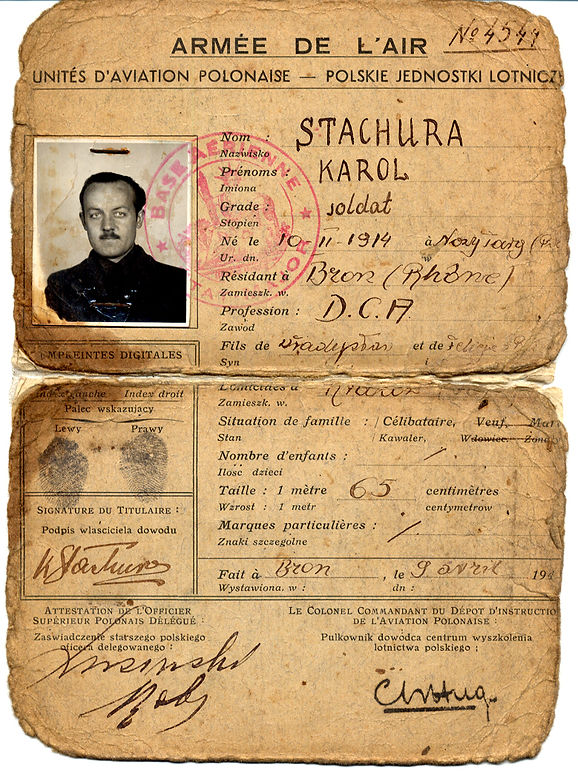 ARMÉE DE L'AIR
No 4571
UNITÉS D'AVIATION POLONAISE — POLSKIE JEDNOSTKI LOTNICZ
BASE AERIENNE
Nom : STACHURA
Nazwisko
Prénoms : KAROL
Imiona
Grade : soldat
Stopien
Né le 10 II 1914 à Nowy Targ
Ur. dn. w
Résidant à Bron (Rhône)
Zamieszk. w.
Profession : D.C.A.
Zawód
Fils de Władysław et de
Syn i
EMPREINTES DIGITALES
Domiciliés à
Zamieszk. w.
Index gauche Index droit
Palec wskazujący
Lewy Prawy
Situation de famille : Célibataire, Veuf, Mar
Stan Kawaler, Wdowiec, Żonaty
Nombre d'enfants : /
Ilosc dzieci
Taille : 1 mètre 65 centimètres
Wzrost : 1 metr centymetrow
Marques particulières : /
Znaki szczegolne
SIGNATURE DU TITULAIRE :
Podpis wlasciciela dowodu
KStachura
Fait à Bron, le 9 avril 194
Wystawiona. w : dn :
ATTESTATION DE L'OFFICIER
SUPÉRIEUR POLONAIS DÉLÉGUÉ :
Zaświadczenie starszego polskiego
oficera delegowanego :
LE COLONEL COMMANDANT DU DÉPOT D'INSTRUCTIO
DE L'AVIATION POLONAISE :
Pulkownik dowódca centrum wyszkolenia
lotnictwa polskiego :